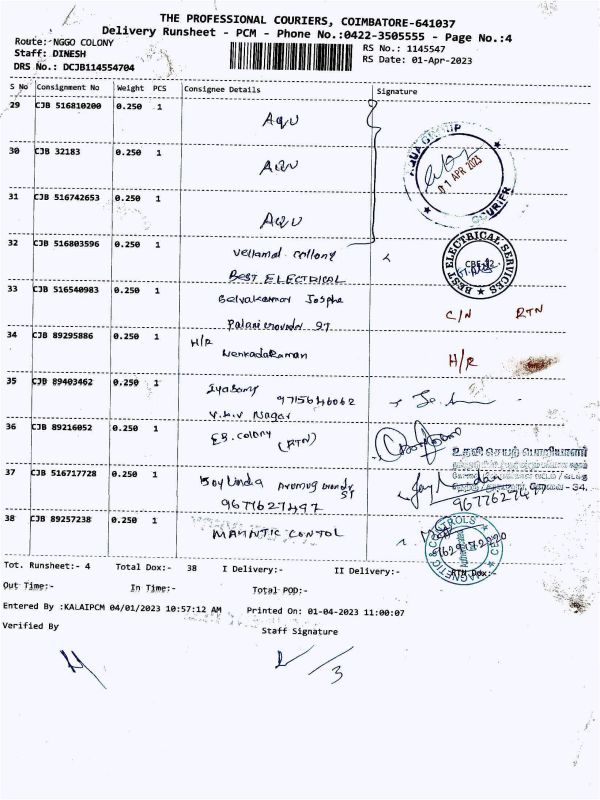 THE PROFESSIONAL COURIERS, COIMBATORE-641037
Delivery Runsheet - PCM - Phone No.:0422-3505555 - Page No.:4
Route: NGGO COLONY
RS No.: 1145547
Staff: DINESH
RS Date: 01-Apr-2023
DRS No.: DCJB114554704
S No Consignment No Weight PCS Consignee Details Signature
29 CJB 516810200 0.250 1
AQU
30 CJB 32183 0.250 1
AQU
AQUA GROUP
01 APR 2023
COURIER
31 CJB 516742653 0.250 1
AQU
32 CJB 516803596 0.250 1
Vellamal collony
BEST ELECTRICAL
BEST ELECTRICAL SERVICES
33 CJB 516540983 0.250 1
Selvakumar Josphe
ST
C/N RTN
34 CJB 89295886 0.250 1
H/R
Venkadaraman
H/R
35 CJB 89403462 0.250 1
Iyasamy
9715646062
V.K.V Nagar
36 CJB 89216052 0.250 1
EB. colony (RTN)
உதவி செயற் பொறியாளர்
37 CJB 516717728 0.250 1
ST
9677627497
9677627497
38 CJB 89257238 0.250 1
MAGNTIC CONTOL
MAGNETIC & CONTROLS
Tot. Runsheet:- 4 Total Dox:- 38 I Delivery:- II Delivery:- RTN Dox:-
Out Time:- In Time:- Total POD:-
Entered By :KALAIPCM 04/01/2023 10:57:12 AM Printed On: 01-04-2023 11:00:07
Verified By
Staff Signature
3